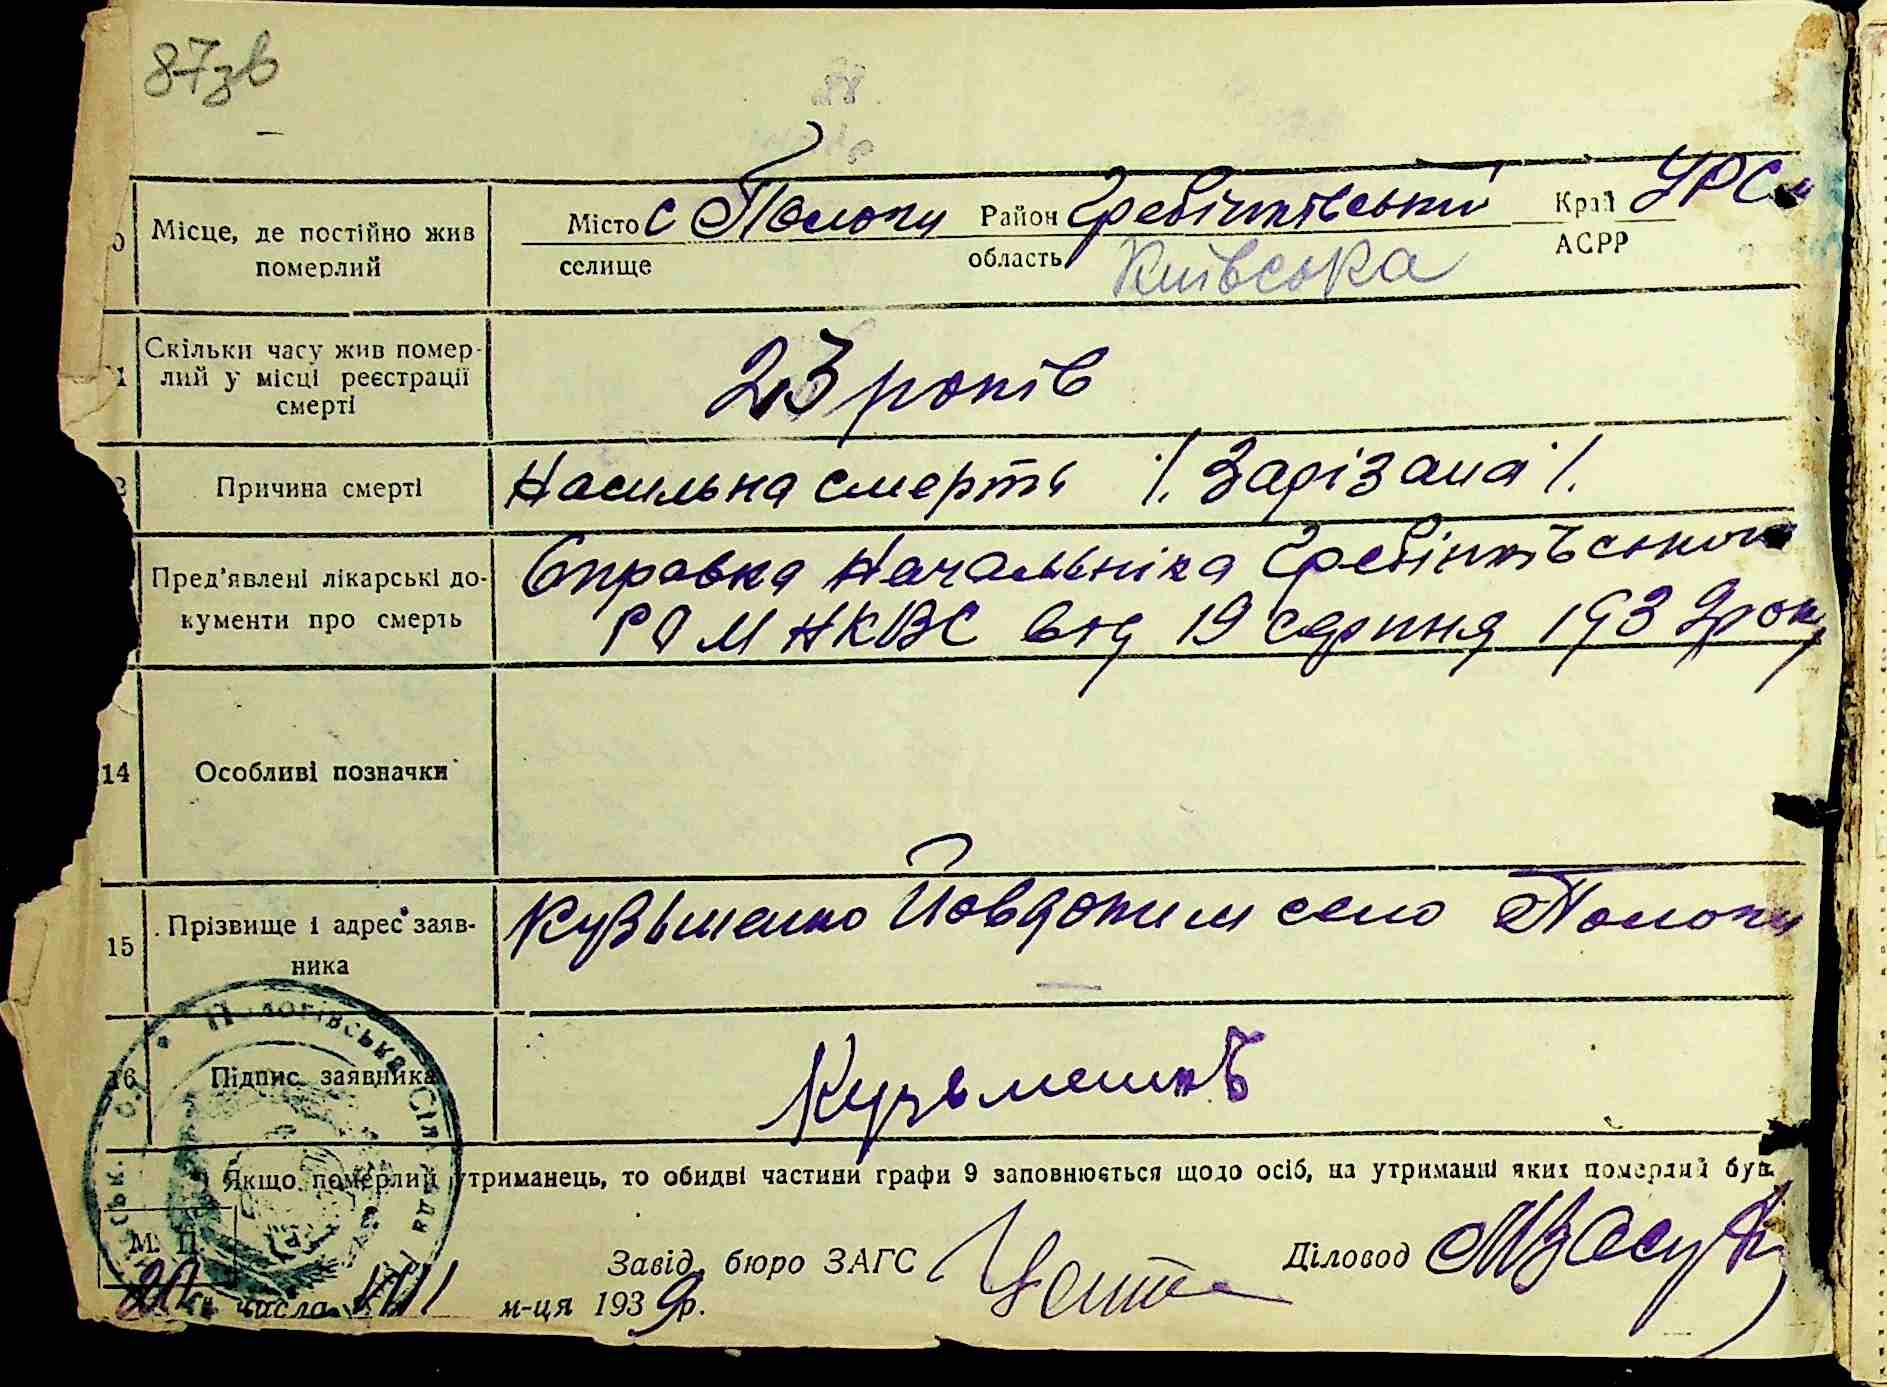 87зв
Місце, де постійно жив
померлий
Місто с Пологи Район Гребінківський Край УРСР
селище область Київська АСРР
Скільки часу жив помер-
лий у місці реєстрації
смерті
23 років
Причина смерті
Насильна смерть /. Зарізана /.
Пред'явлені лікарські до-
кументи про смерть
Справка Начальніка Гребінківського
РО М НКВС від 19 серпня 1939 року
14 Особливі позначки
15 Прізвище і адрес заяв-
ника
Кузьменко Йовдоким село Пологи
16 Підпис заявника
Кузьменко
Якщо померлий утриманець, то обидві частини графи 9 заповнюється щодо осіб, на утриманні яких померлий був.
М. П.
Завід. бюро ЗАГС
Діловод
20 числа VIII м-ця 1939 р.
Пологівська сільська